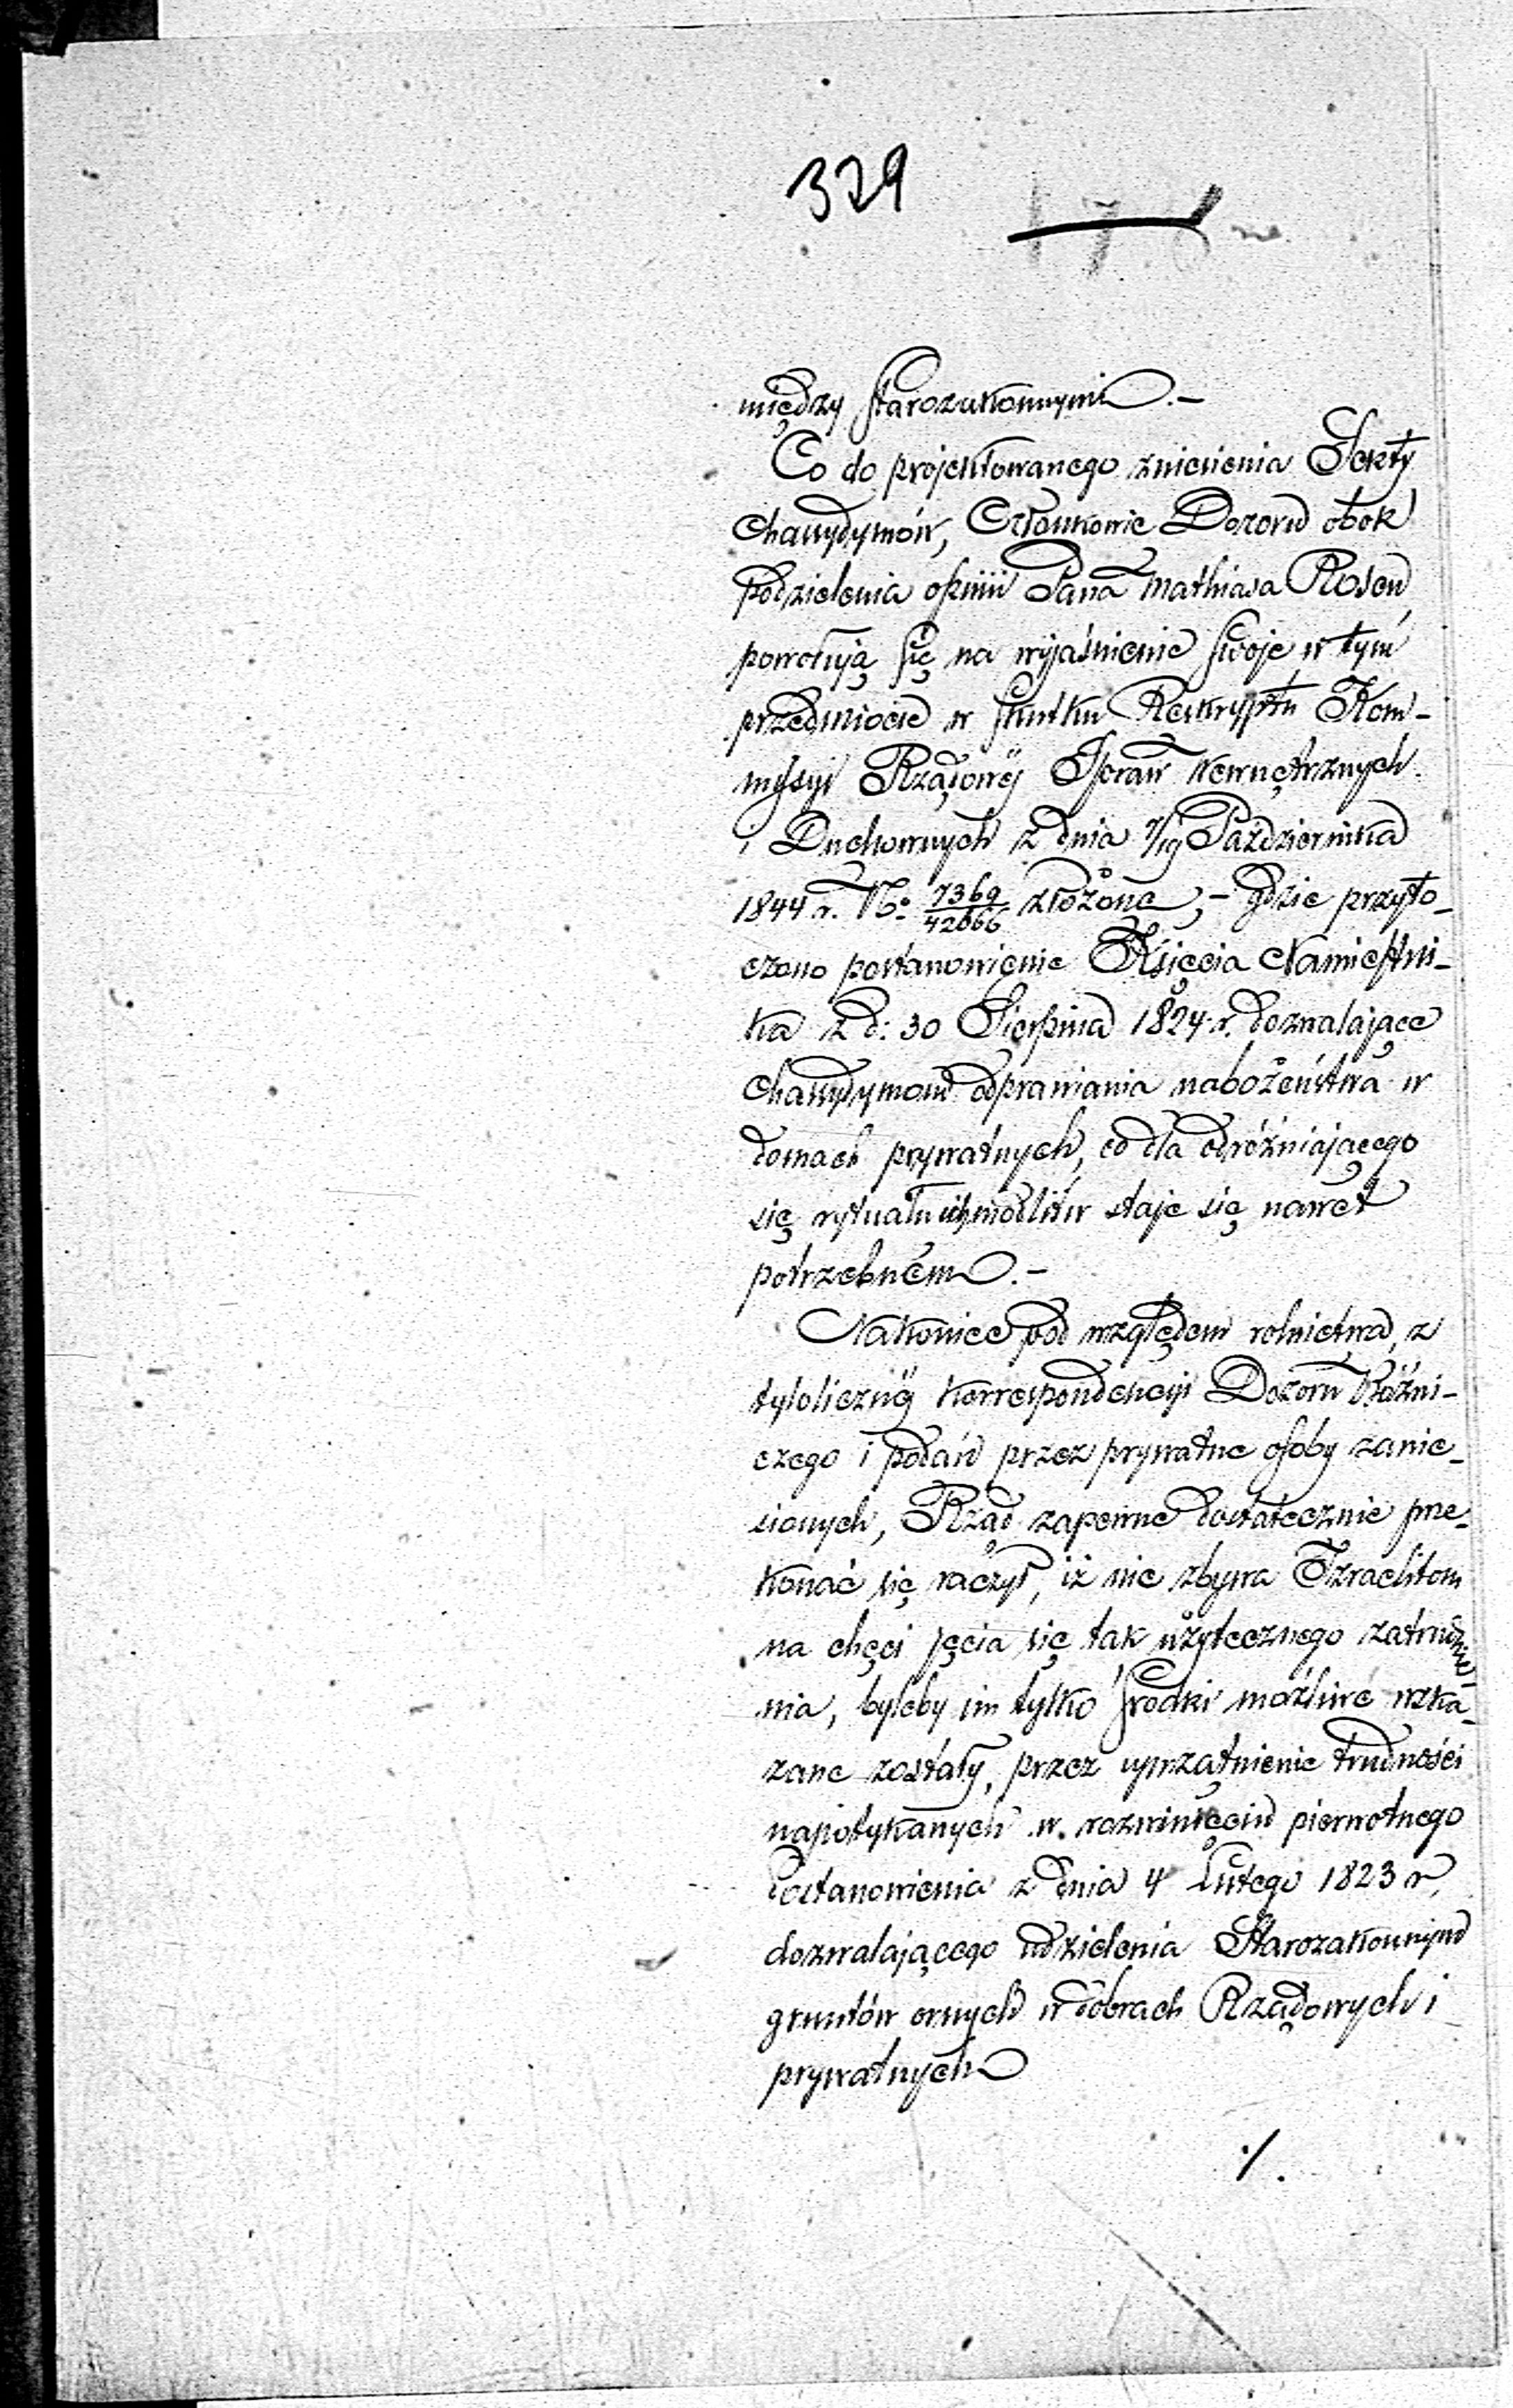 329
między Starozakonnymi.—
Co do projektowanego zniesienia Sekty
Chassydymów, Członkowie Dozoru obok
podzielenia opinii Pana Mathiasa Rosen
powołują się na wyjaśnienie swoje w tym
przedmiocie w skutku Reskryptu Kom-
myssyi Rządowéj Spraw Wewnętrznych
i Duchownych z dnia 7/19 Października
1844 r. No. 7369/42666 złożone,— gdzie przyto-
czono postanowienie Księcia Namiestni-
ka z d: 30 Sierpnia 1824 r. dozwalające
Chassydymom odprawiania nabożeństwa w
domach prywatnych, co dla odróżniającego
się rytuału ich modlitw staje się nawet
potrzebném.—
Nakoniec pod względem rolnictwa, z
tylolicznéj korrespondencyi Dozoru Bóżni-
czego i podań przez prywatne osoby zanie-
sionych, Rząd zapewne dostatecznie prze-
konać się raczył, iż nie zbywa Izraelitom
na chęci jęcia się tak użytecznego zatrudnie-
nia, byleby im tylko środki możliwe wska-
zane zostały, przez uprzątnienie trudności
napotykanych w rozwinięciu pierwotnego
Postanowienia z dnia 4 Lutego 1823 r.
dozwalającego udzielenia Starozakonnym
gruntów ornych w dobrach Rządowych i
prywatnych
./.